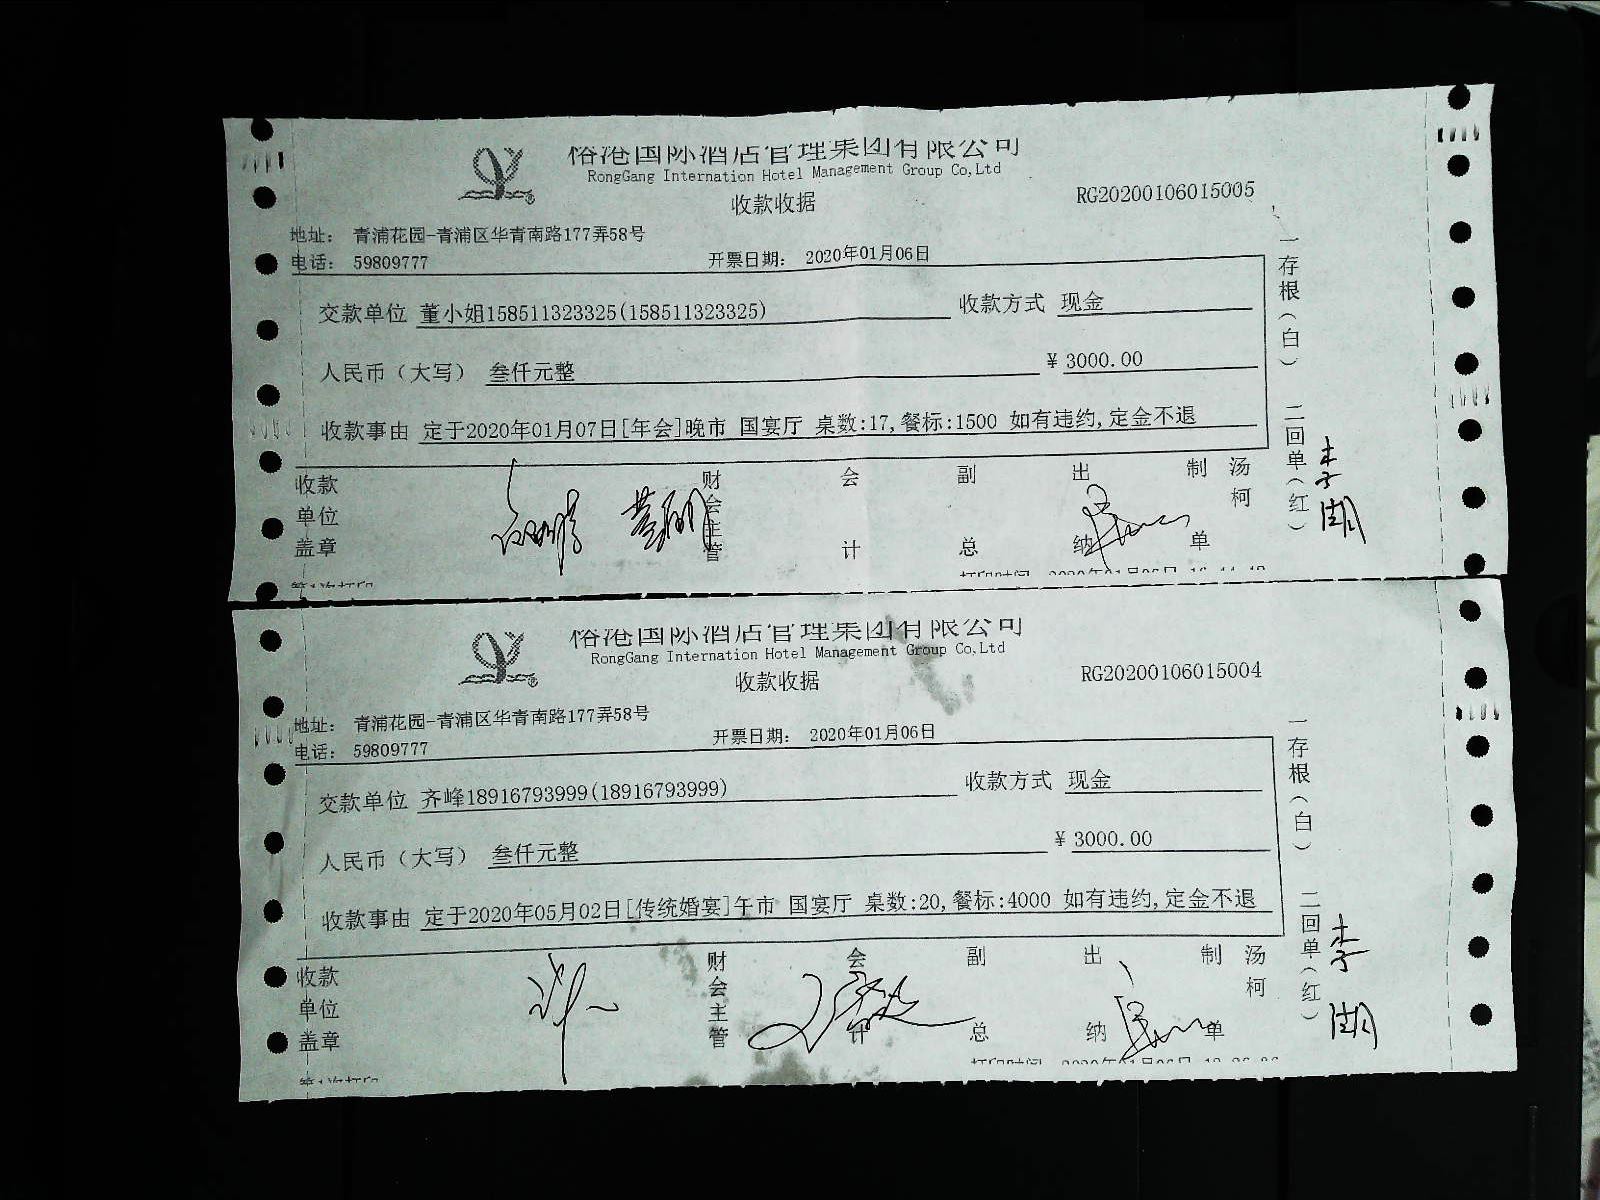 国际酒店管理集团有限公司
RongGang Internation Hotel Management Group Co,Ltd
收款收据
RG20200106015005
地址： 青浦花园-青浦区华青南路177弄58号
电话： 59809777
开票日期： 2020年01月06日
交款单位 董小姐158511323325(158511323325)
收款方式 现金
人民币（大写） 叁仟元整
¥ 3000.00
收款事由 定于2020年01月07日[年会]晚市 国宴厅 桌数:17,餐标:1500 如有违约,定金不退
一存根（白） 二回单（红）
收款单位盖章
财会主管
会计
副总
出纳
制单
汤柯
国际酒店管理集团有限公司
RongGang Internation Hotel Management Group Co,Ltd
收款收据
RG20200106015004
地址： 青浦花园-青浦区华青南路177弄58号
电话： 59809777
开票日期： 2020年01月06日
交款单位 齐峰18916793999(18916793999)
收款方式 现金
人民币（大写） 叁仟元整
¥ 3000.00
收款事由 定于2020年05月02日[传统婚宴]午市 国宴厅 桌数:20,餐标:4000 如有违约,定金不退
一存根（白） 二回单（红）
收款单位盖章
财会主管
会计
副总
出纳
制单
汤柯